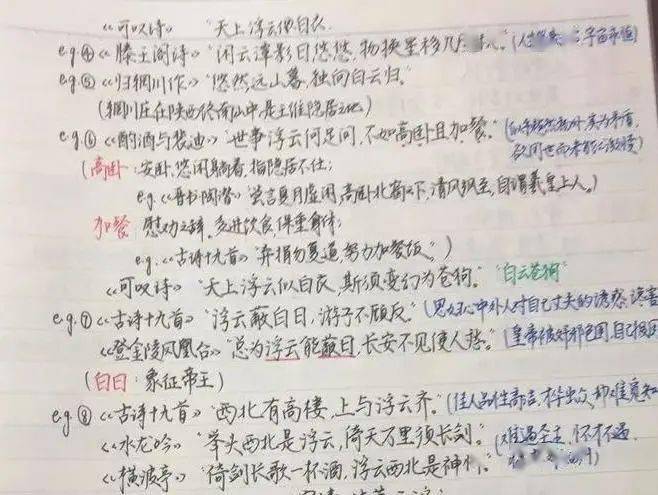 《可叹诗》 "天上浮云似白衣
e.g.④《滕王阁诗》"闲云潭影日悠悠,物换星移几
e.g.⑤《归辋川作》"悠然远山暮,独向白云归."
(辋川庄在陕西终南山中是王维隐居之地)
e.g.⑥《酌酒与裴迪》"世事浮云何足问,不如高卧且加餐."
(高卧:安卧,悠闲躺着,指隐居不仕;
e.g.《晋书·陶潜》"尝言夏月虚闲,高卧北窗之下,清风飒至,自谓羲皇上人.)
加餐 慰劝之辞.多进饮食,保重身体;
e.g.《古诗十九首》"弃捐勿复道,努力加餐饭.")
《可叹诗》"天上浮云似白衣,斯须变幻为苍狗." "白云苍狗"
e.g.⑦《古诗十九首》"浮云蔽白日,游子不顾反."(思妇心中外人对自己丈夫的诱惑.谗害
《登金陵凤凰台》"总为浮云能蔽日,长安不见使人愁."(皇帝被奸邪包围,自己报国
(白日:象征帝王)
e.g.⑧《古诗十九首》"西北有高楼,上与浮云齐."(佳人品性高洁,才华出众,却难觅知
《水龙吟》"举头西北是浮云,倚天万里须长剑."(难遇圣主,怀才不遇.
《横波亭》"倚剑长歌一杯酒,浮云西北是神州."